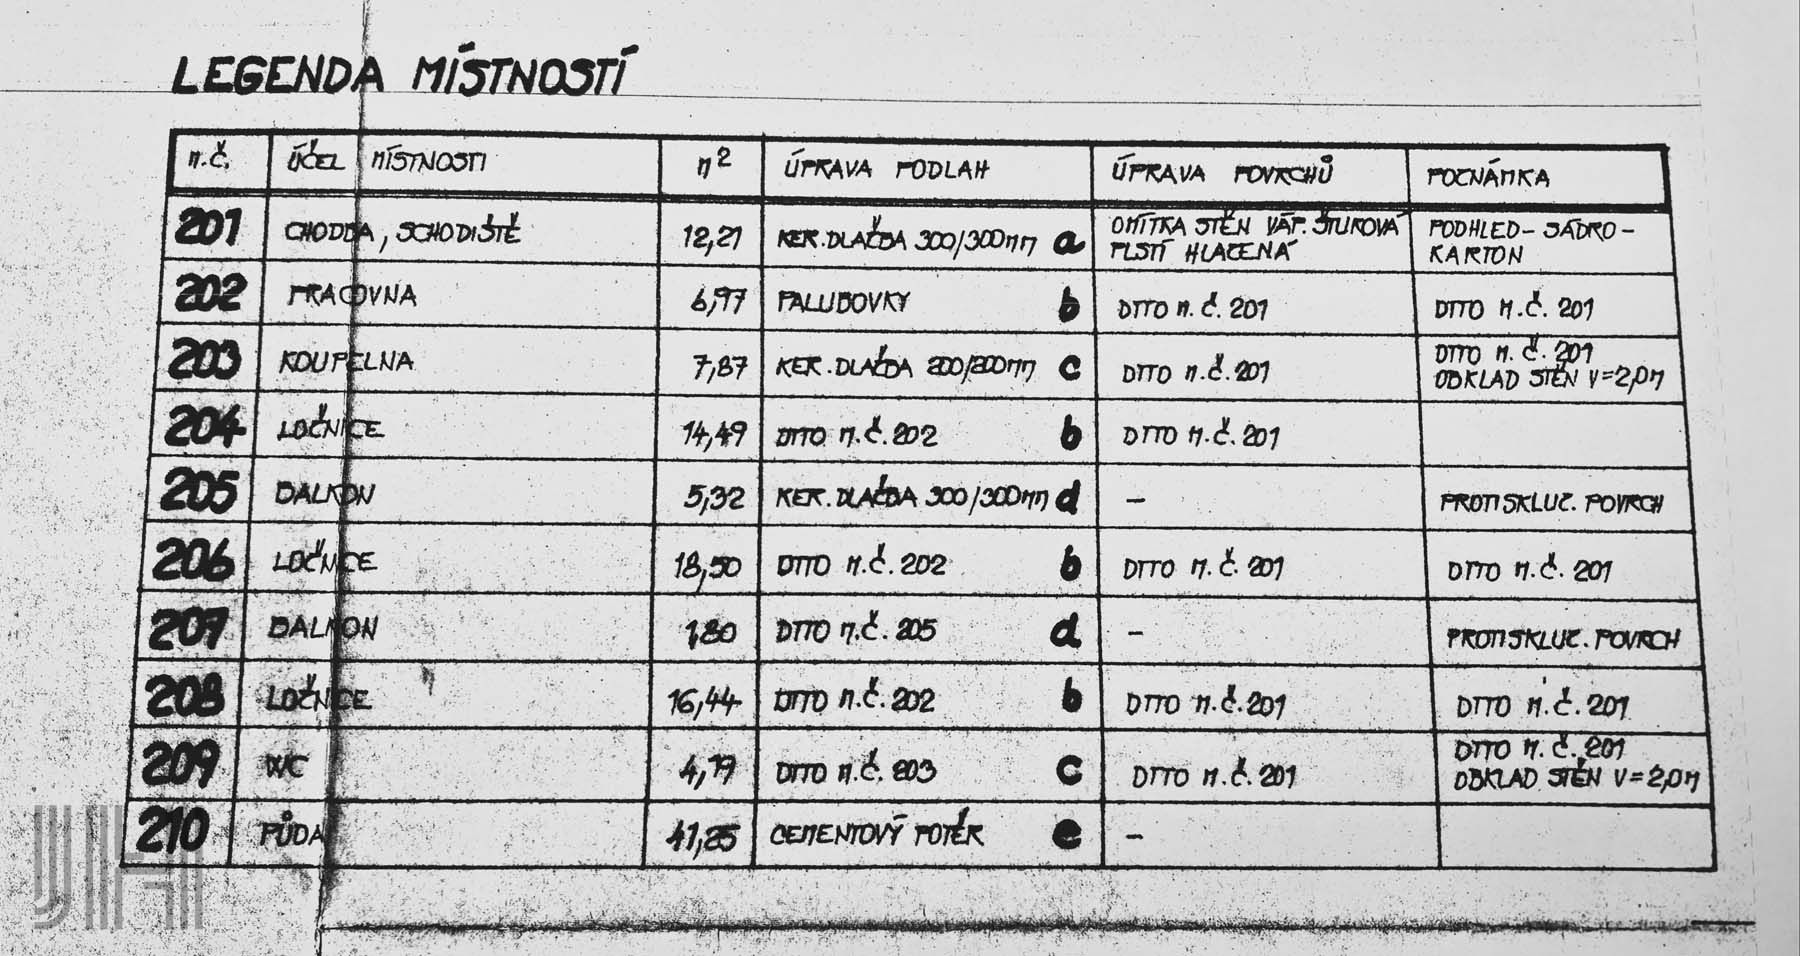 LEGENDA MÍSTNOSTÍ
M.Č. ÚČEL MÍSTNOSTI M² ÚPRAVA PODLAH ÚPRAVA POVRCHŮ POZNÁMKA
201 CHODBA, SCHODIŠTĚ 12,21 KER. DLAČBA 300/300MM a OMÍTKA STĚN VÁP. ŠTUKOVÁ PLSTÍ HLAZENÁ PODHLED - SÁDRO-KARTON
202 PRACOVNA 6,97 PALUBOVKY b DTTO M.Č. 201 DTTO M.Č. 201
203 KOUPELNA 7,87 KER. DLAČBA 200/200MM c DTTO M.Č. 201 DTTO M.Č. 201 OBKLAD STĚN V=2,0M
204 LOČNICE 14,49 DTTO M.Č. 202 b DTTO M.Č. 201
205 BALKON 5,32 KER. DLAČBA 300/300MM d – PROTISKLUZ. POVRCH
206 LOČNICE 18,50 DTTO M.Č. 202 b DTTO M.Č. 201 DTTO M.Č. 201
207 BALKON 1,80 DTTO M.Č. 205 d – PROTISKLUZ. POVRCH
208 LOČNICE 16,44 DTTO M.Č. 202 b DTTO M.Č. 201 DTTO M.Č. 201
209 WC 4,79 DTTO M.Č. 203 c DTTO M.Č. 201 DTTO M.Č. 201 OBKLAD STĚN V=2,0M
210 PŮDA 41,25 CEMENTOVÝ POTĚR e –